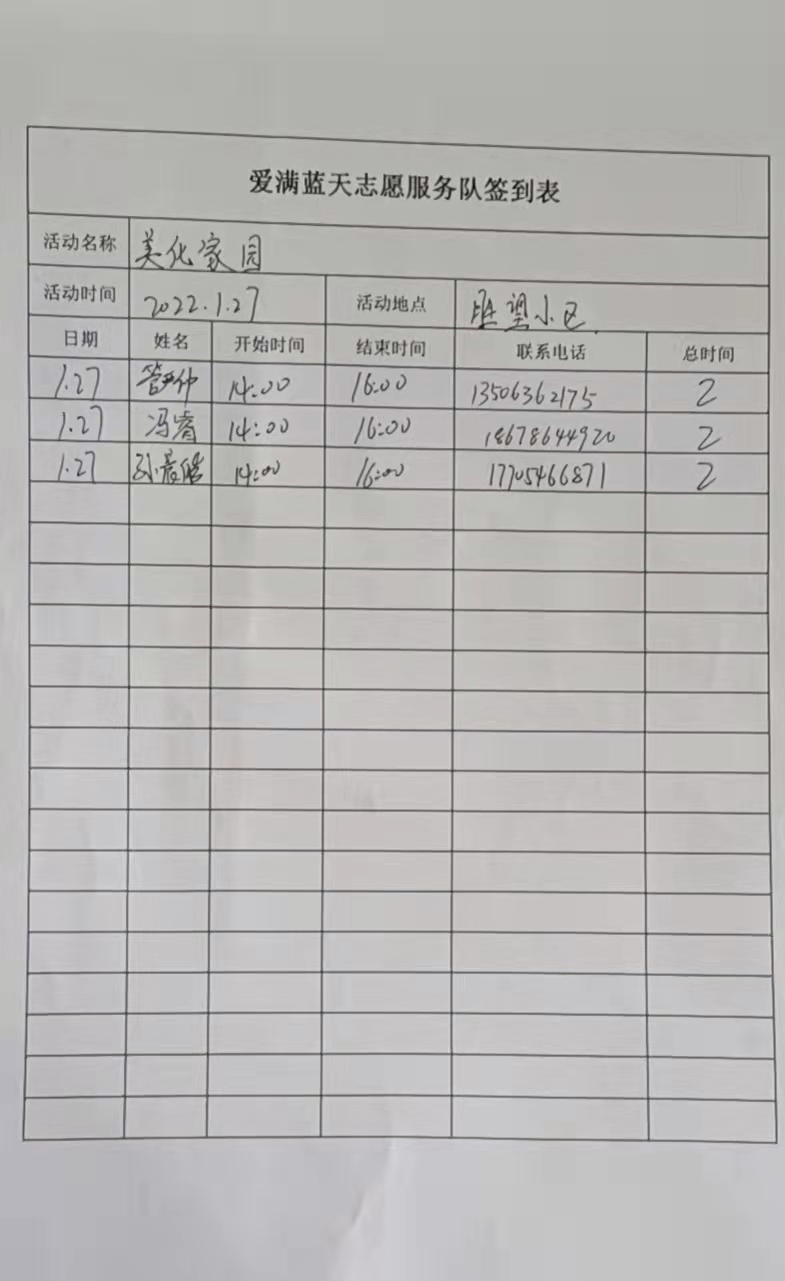 爱满蓝天志愿服务队签到表
活动名称 美化家园
活动时间 2022.1.27 活动地点 胜望小区
日期 姓名 开始时间 结束时间 联系电话 总时间
1.27 14:00 16:00 13506362175 2
1.27 冯睿 14:00 16:00 18678644920 2
1.27 孙晨皓 14:00 16:00 17705466871 2